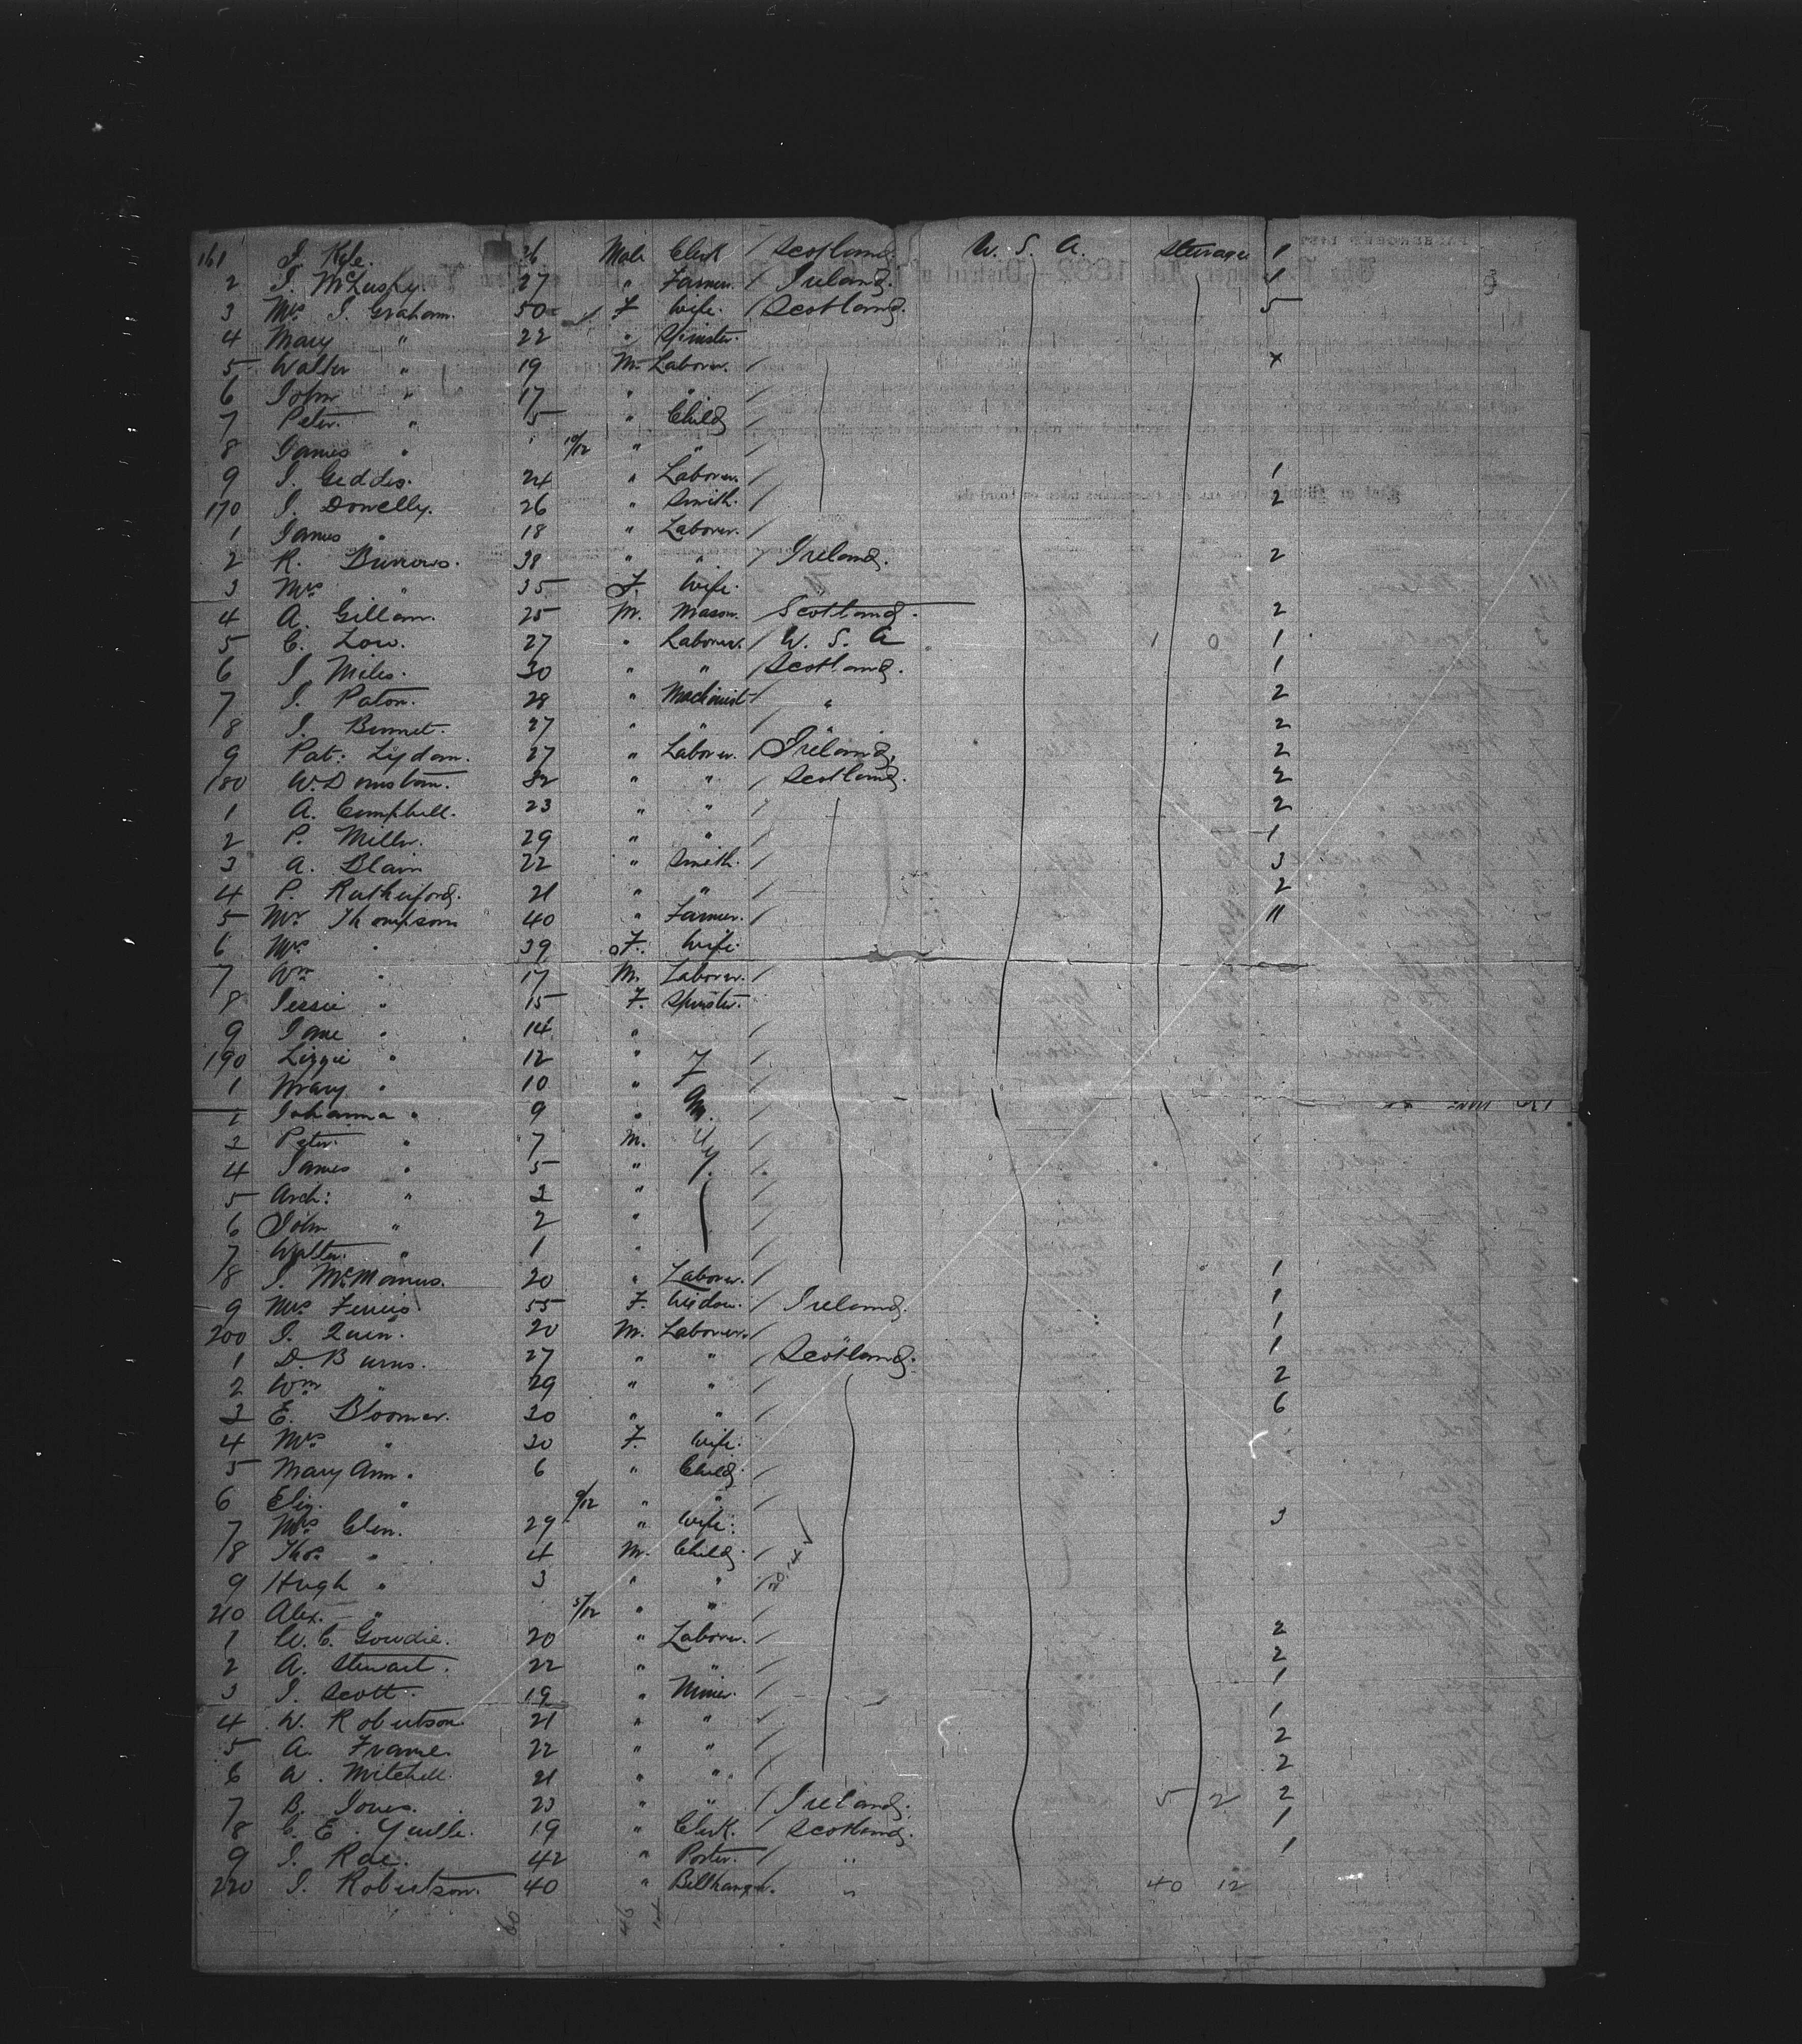 161 J. Kyle. 26 Male Clerk / Scotland. U. S. A. Steerage 1
2 J. McLusky. 27 " Farmer. / Ireland. 1
3 Mrs J. Graham. 50 F Wife. / Scotland. 5
4 Mary " 22 " Spinster.
5 Walter " 19 M. Laborer. /
6 John " 17 " " /
7 Peter. " 5 " Child /
8 James " 10/12 " " /
9 J. Geddes. 24 " Laborer. / 1
170 J. Donelly. 26 " Smith. / 2
1 James " 18 " Laborer. /
2 R. Burrows. 38 " " / Ireland. 2
3 Mrs " 35 F. Wife. "
4 A. Gillam. 25 M. Mason. / Scotland. 2
5 C. Low. 27 " Laborer. / U. S. A 1 0 1
6 J. Miles. 30 " " / Scotland. 1
7 J. Paton. 28 " Machinist / " 2
8 J. Bennet. 27 " " / 2
9 Pat: Lydam. 27 " Laborer. / Ireland. 2
180 W. 32 " " / Scotland. 2
1 A. Campbell. 23 " " / 2
2 P. Miller. 29 " " / 1
3 A. Blair 22 " Smith. / 3
4 P. Rutherford. 21 " " / 2
5 Mr Thompson 40 " Farmer. / 11
6 Mrs " 39 F. Wife.
7 Wm " 17 M. Laborer. /
8 Jessie " 15 F. Spinster.
9 Jane " 14 " /
190 Lizzie " 12 " /
1 Mary " 10 " /
1 Johanna " 9 " /
3 Peter. " 7 M. /
4 James " 5 " /
5 Arch: " 3 " /
6 John " 2 " /
7 Walter. " 1 " /
8 J. McManus. 20 " Laborer. / 1
9 Mrs Ferris 55 F. Widow. / Ireland. 1
200 J. Quin. 20 M. Laborer. / 1
1 D. Burns. 27 " " / Scotland. 1
2 Wm " 29 " " / 2
3 E. Bloomer. 30 " " / 6
4 Mrs " 30 F. Wife.
5 Mary Ann " 6 " Child. /
6 Eliz. " 9/12 " " /
7 Mrs Glen. 29 " Wife. 3
8 Thos " 4 M. Child. /
9 Hugh " 3 " " /
210 Alex. " 5/12 " " /
1 W. C. Gowdie. 20 " Laborer. / 2
2 A. Stewart. 22 " " / 2
3 J. Scott. 19 " Miner. / 1
4 W. Robertson. 21 " " / 1
5 A. Frame. 22 " " / 2
6 W. Mitchell. 21 " " / 2
7 B. Jones. 23 " " / Ireland. 5 2 2
8 C. E. Yuille. 19 " Clerk. / Scotland. 1
9 J. Rae. 42 " Porter. / " 1
220 J. Robertson. 40 " Bellhanger. " 40 12
60 46 14